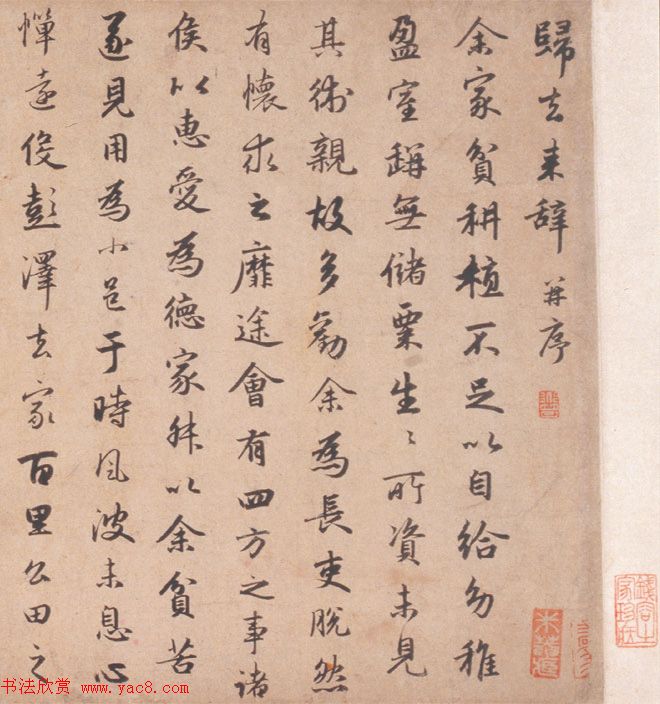 歸去来辞 并序
余家貧耕植不足以自給幼稚
盈室缾無儲粟生〻所資未見
其術親故多勸余為長吏脫然
有懷求之靡途會有四方之事諸
侯以惠愛為德家叔以余貧苦
遂見用為小邑于時风波未息心
憚遠役彭澤去家百里公田之
书法欣赏 www.yac8.com